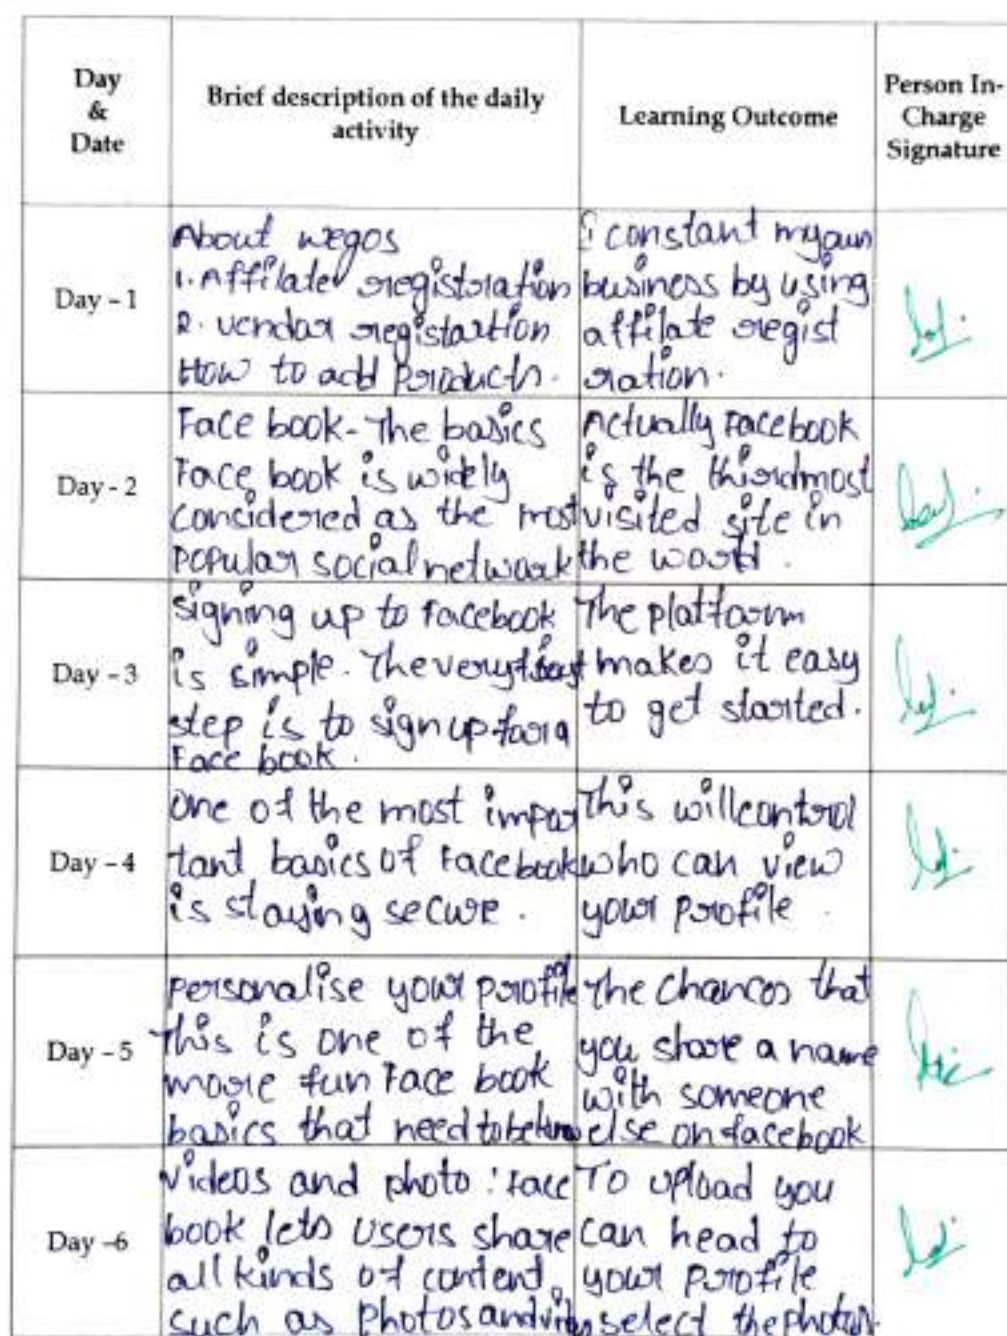 Day
&
Date
Brief description of the daily
activity
Learning Outcome
Person In-
Charge
Signature
Day - 1
About wegos
1. Affilate registoration
2. vendar registartion
How to add Products.
I constant my own
business by using
affilate regist
ration.
Day - 2
Face book - The basics
Face book is widely
considered as the most
Popular social network
Actually Facebook
is the third most
visited site in
the world.
Day - 3
signing up to Facebook
is simple. The very first
step is to sign up for a
Face book.
The platform
makes it easy
to get started.
Day - 4
one of the most impor
tant basics of Facebook
is staying secure.
This will control
who can view
your profile.
Day - 5
personalise your profile
This is one of the
more fun Face book
basics that need to be
The chances that
you share a name
with someone
else on facebook
Day -6
videos and photo : Face
book lets users share
all kinds of content,
such as photos and
To upload you
can head to
your profile
select the